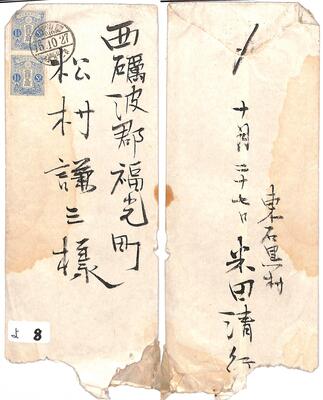 西礪波郡福光町
松村謙三様
6.10.27
よ 8
十月二十七日
東石黒村
米田清行